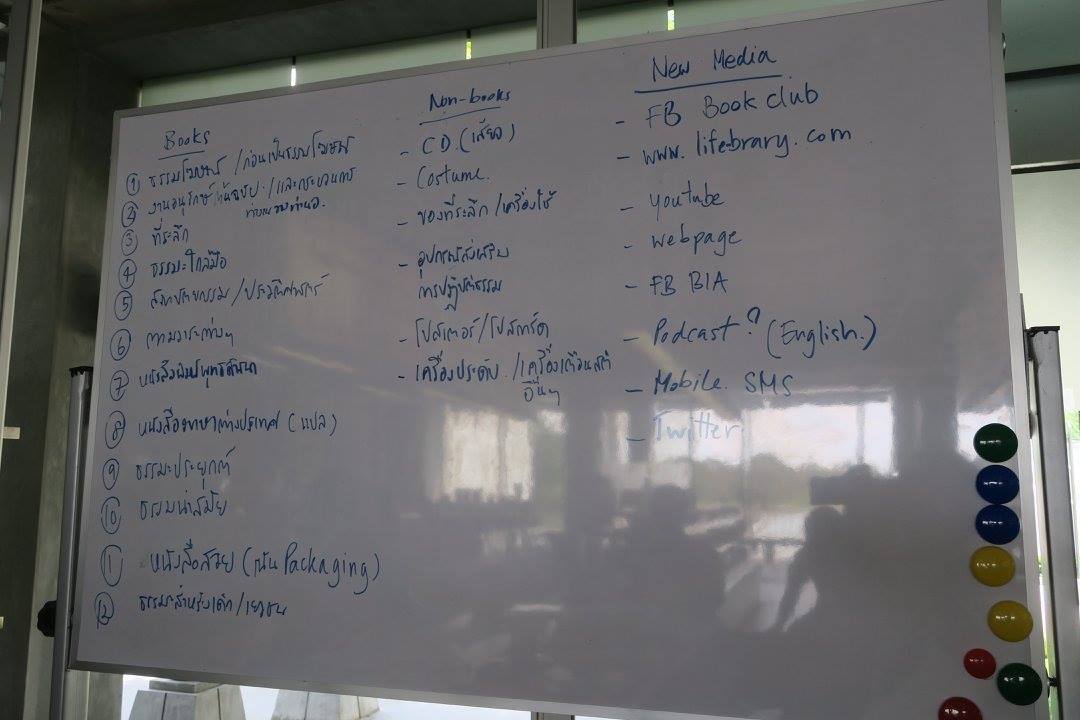 Books
① ธรรมโฆษณ์ /ก่อนเป็นธรรมโฆษณ์
② งานอนุรักษ์ต้นฉบับ /และกระบวนการ
ทำงานของท่านอ.
③ ที่ระลึก
④ ธรรมะใกล้มือ
⑤ /ประวัติศาสตร์
⑥ ตามวาระต่างๆ
⑦ หนังสือพิมพ์พุทธสาสนา
⑧ หนังสือภาษาต่างประเทศ (แปล)
⑨ ธรรมะประยุกต์
⑩ ธรรมนำสมัย
⑪ หนังสือสวย (เน้น Packaging)
⑫ ธรรมะสำหรับเด็ก/เยาวชน
Non-books
- CD (เสียง)
- Costume.
- ของที่ระลึก /เครื่องใช้
- อุปกรณ์ส่งเสริม
การปฏิบัติธรรม
- โปสเตอร์/โปสการ์ด
- เครื่องประดับ /เครื่องเตือนสติ
อื่นๆ
New Media
- FB Book club
- www. lifebrary. com
- youtube
- webpage
- FB BIA
- Podcast ? (English.)
- Mobile SMS
- Twitter